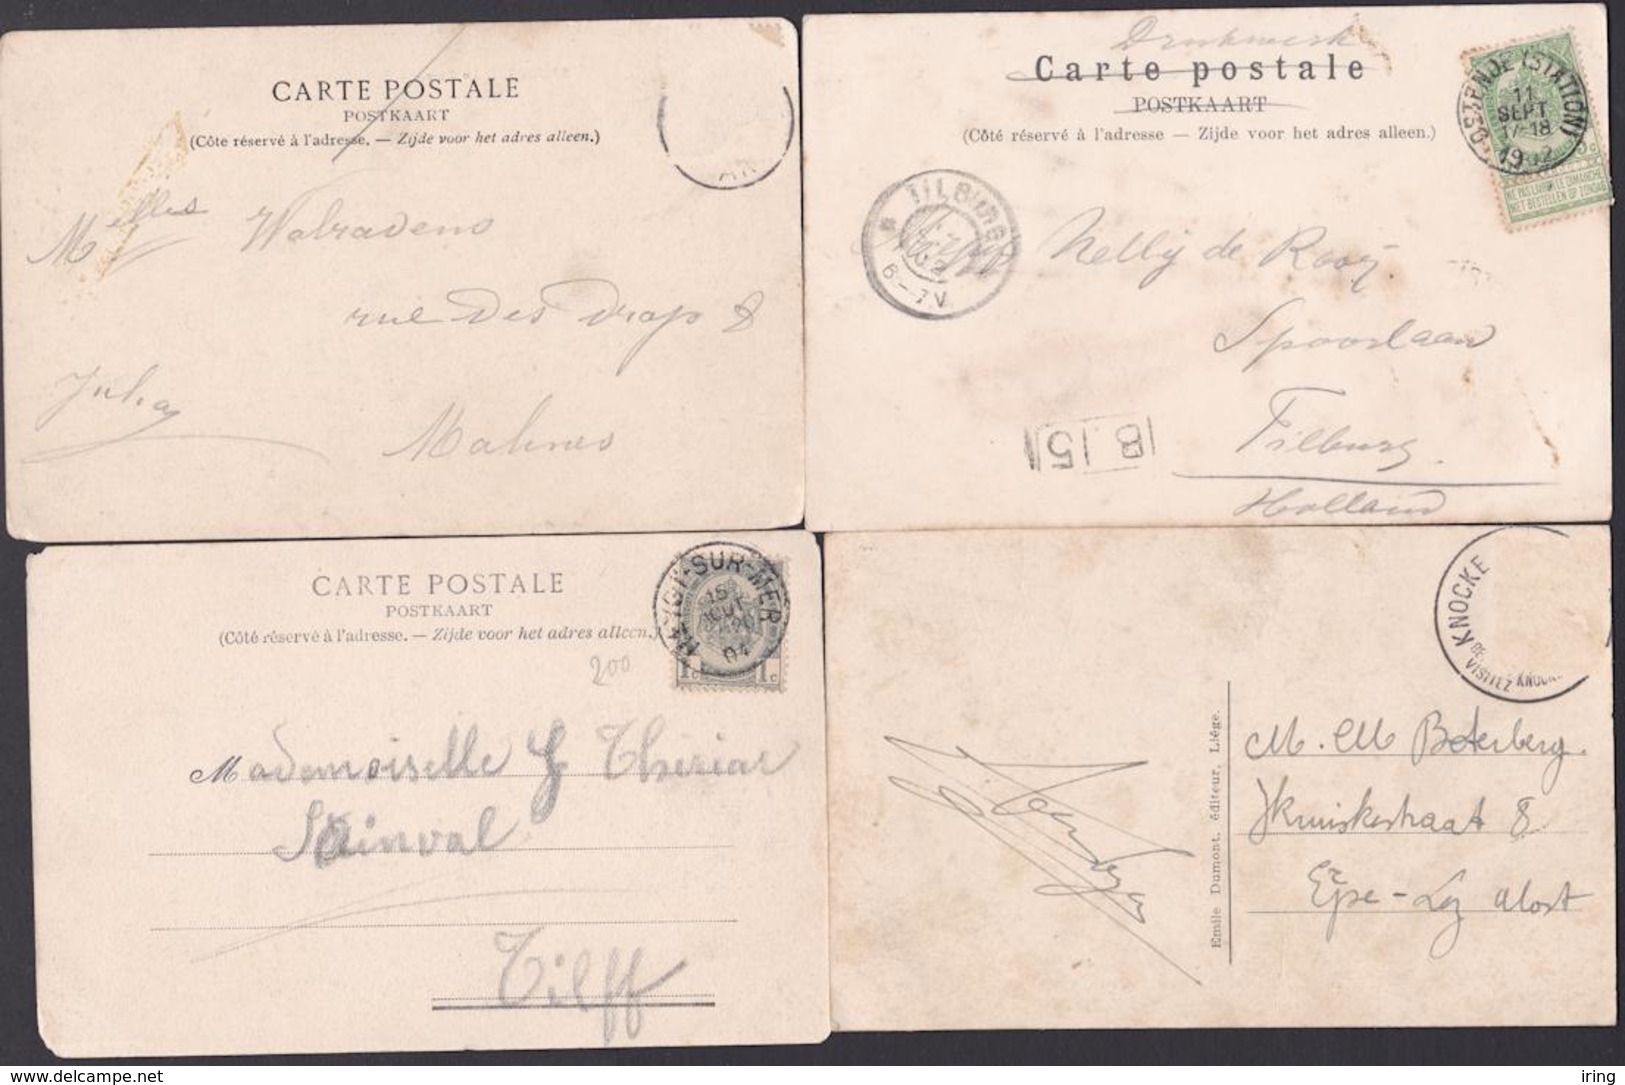 CARTE POSTALE
POSTKAART
(Côté réservé à l'adresse. — Zijde voor het adres alleen.)
Melles Walravens
rue des Draps 8
Malines
Drukwerk
Carte postale
POSTKAART
(Côté réservé à l'adresse — Zijde voor het adres alleen.)
OSTENDE (STATION)
11
SEPT
17-18
1902
NE PAS LIVRER LE DIMANCHE
NIET BESTELLEN OP ZONDAG
TILBURG
6-7V
Nelly de Rooy
Spoorlaan
Tilburg.
Holland
8 15
CARTE POSTALE
POSTKAART
(Côté réservé à l'adresse. — Zijde voor het adres alleen.)
200
-SUR-MER
15
AOUT
04
1c 1c
Mademoiselle
Sainval
Tilff
KNOCKE
VISITEZ KNOCK
Emile Dumont, éditeur, Liége.
M. M Boterberg.
Kruiskestraat 8
Erpe-Lez Alost
www.delcampe.net
iring